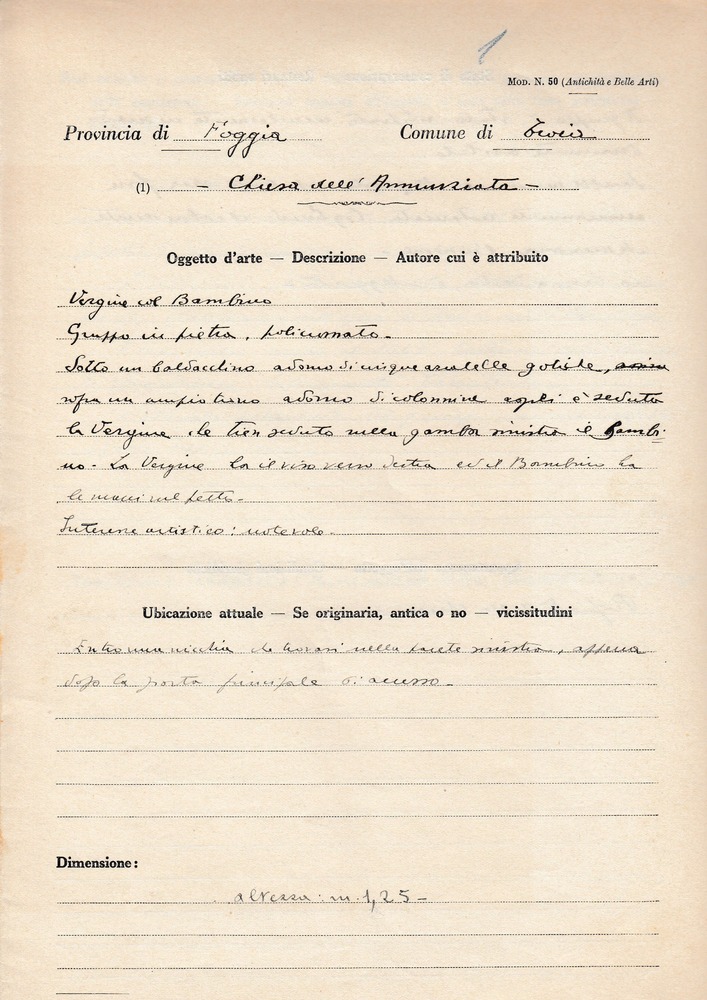 1
Mod. N. 50 (Antichità e Belle Arti)
Provincia di Foggia Comune di Troia
(1) - Chiesa dell'Annunziata -
Oggetto d'arte — Descrizione — Autore cui è attribuito
Vergine col Bambino
Gruppo in pietra, policromato.
Sotto un baldacchino adorno di cinque arcatelle gotiche,
sopra un ampio trono adorno di colonnine è seduta
la Vergine che tien seduto sulla gamba sinistra il Bambi-
no. La Vergine ha il viso verso destra ed il Bambino ha
le mani sul petto.
Interesse artistico: notevole.
Ubicazione attuale — Se originaria, antica o no — vicissitudini
Entro una nicchia che trovasi nella parete sinistra, appena
dopo la porta principale di accesso.
Dimensione:
altezza: m. 1,25 -